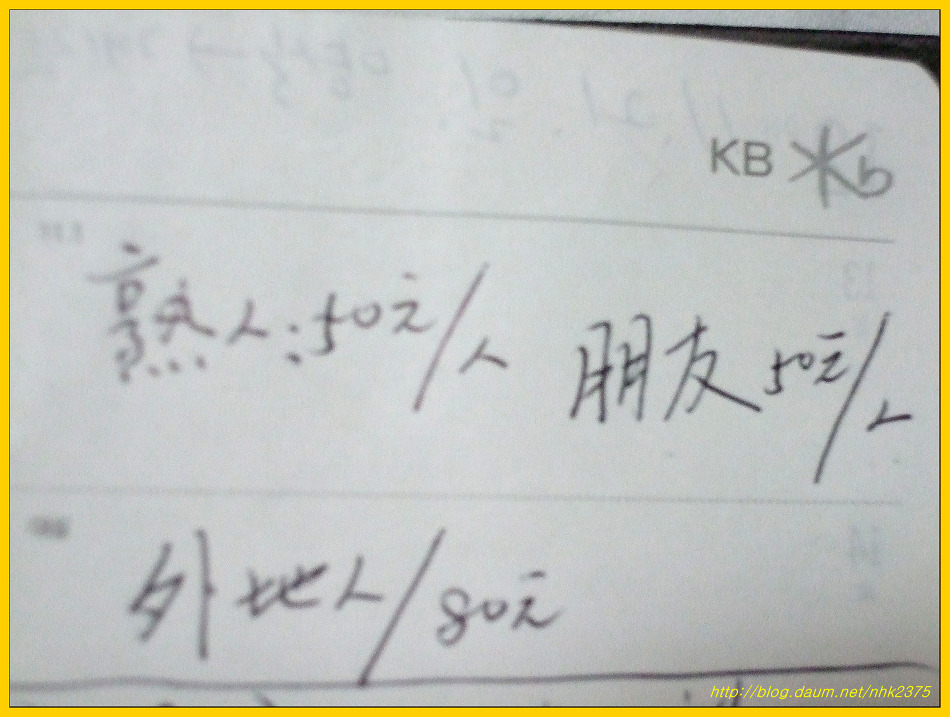 KB
熟人:50元/人 朋友50元/人
外地人/80元
http://blog.daum.net/nhk2375